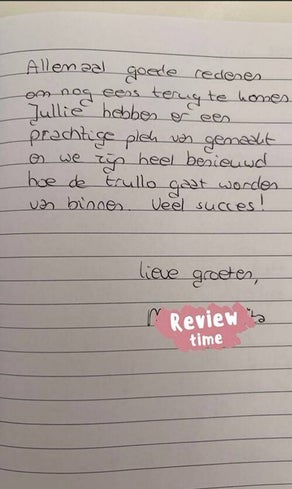 Allemaal goede redenen
om nog eens terug te komen
Jullie hebben er een
prachtige plek van gemaakt
en we zijn heel benieuwd
hoe de trullo gaat worden
van binnen. Veel succes!
lieve groeten,
Review
time